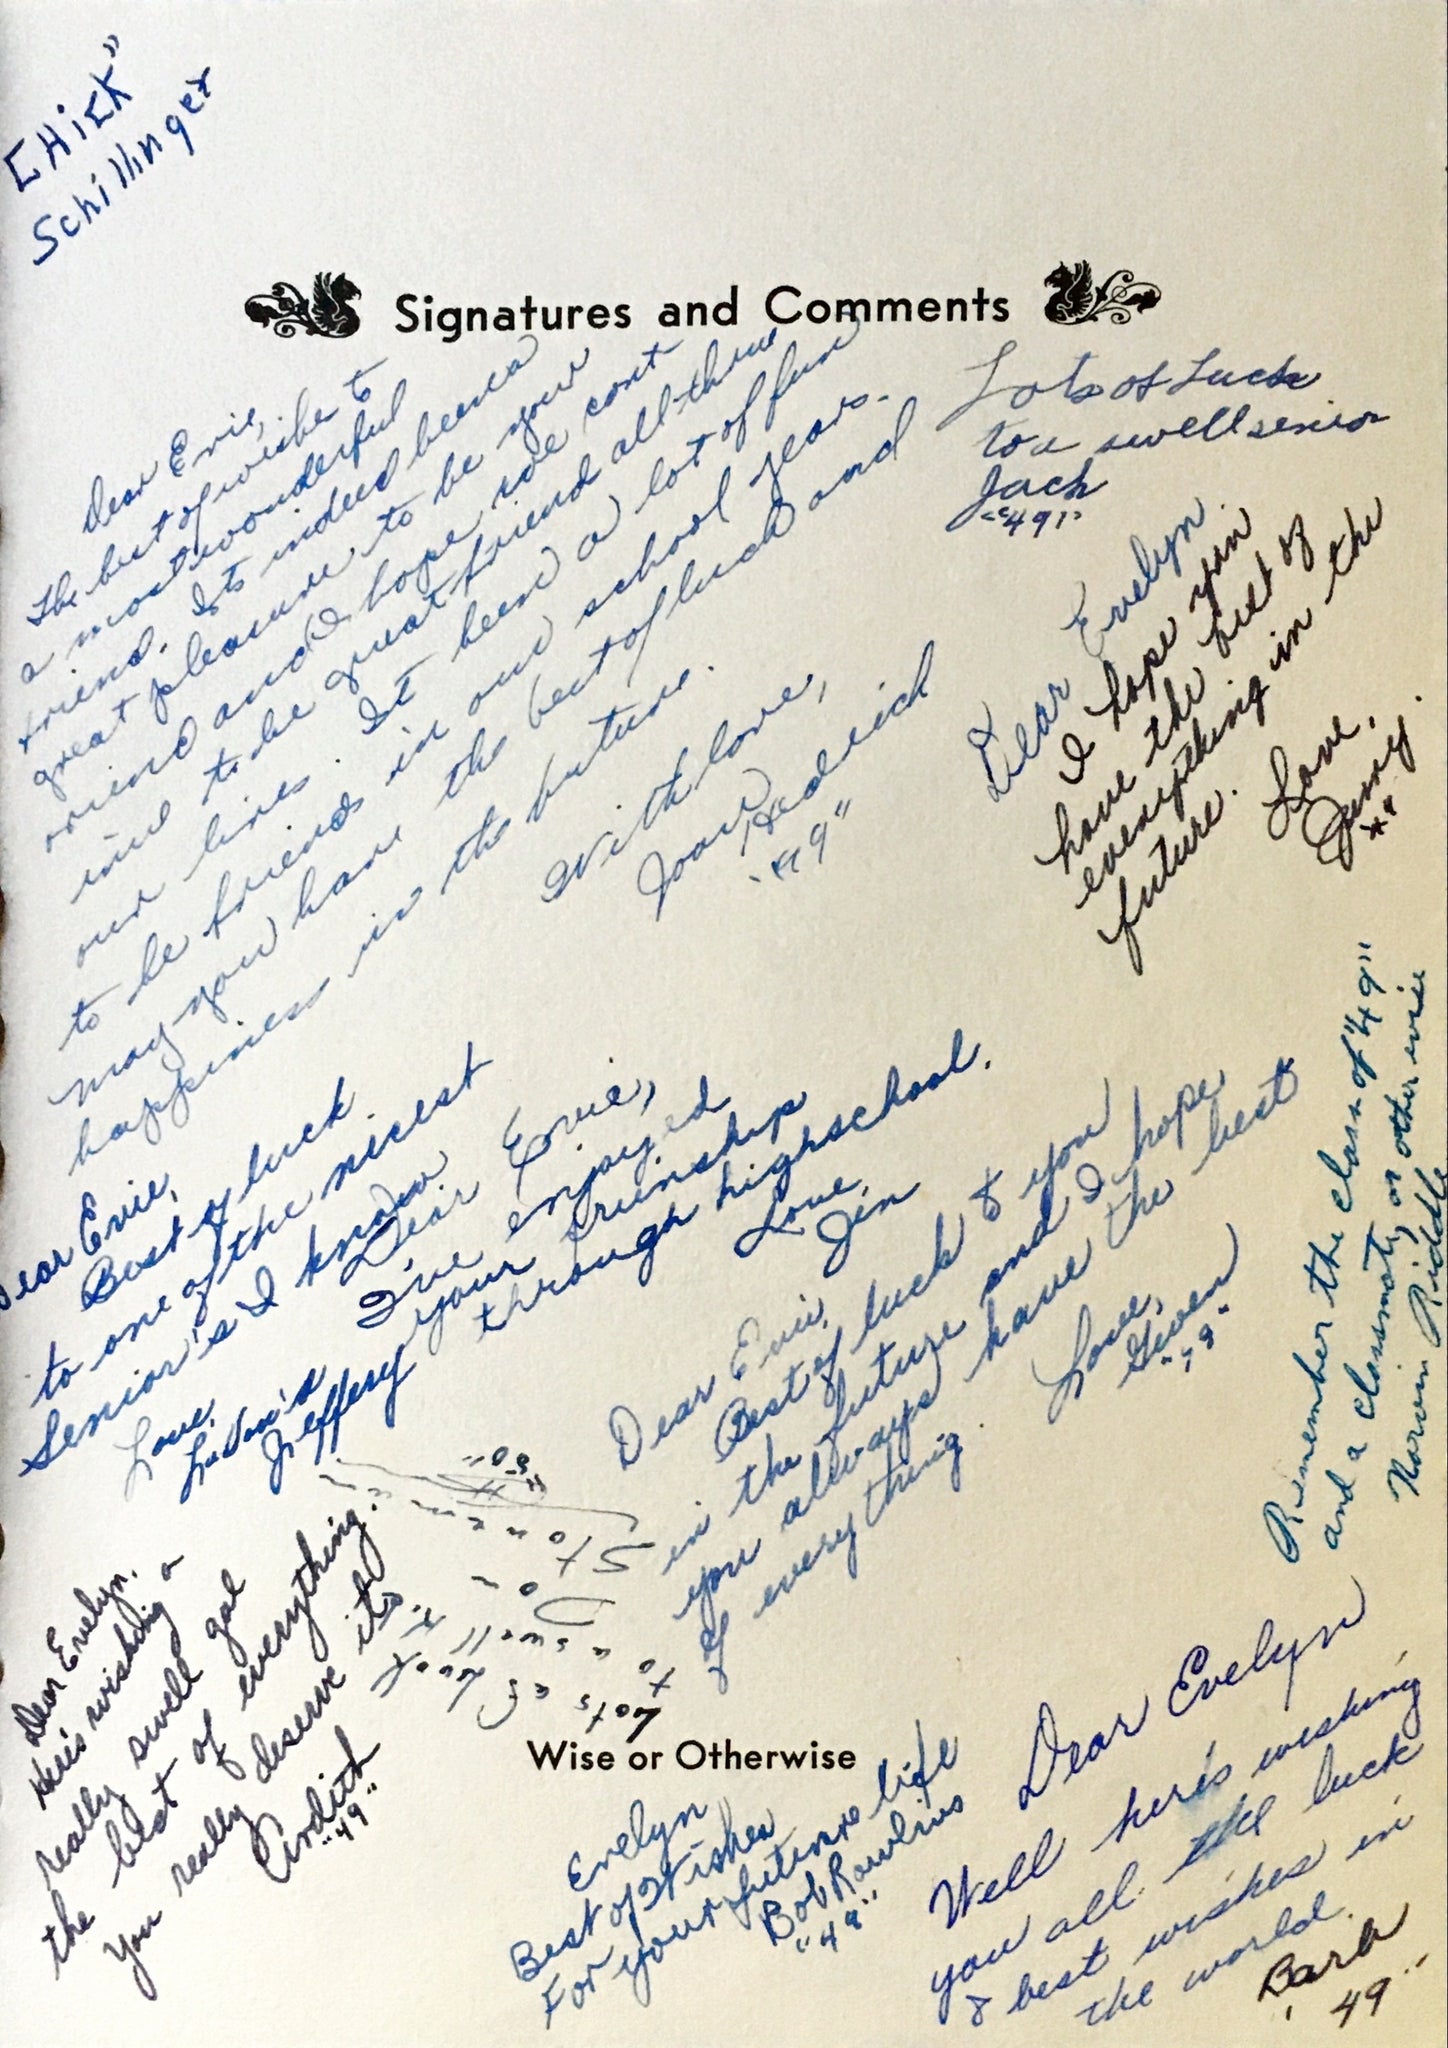 "CHICK"
Schillinger
Signatures and Comments
Dear Evie,
The best of wishes to
a most wonderful
friend. Its indeed been a
great pleasure to be your
friend and I hope we cont
inue to be great friend all thrue
our lives. It been a lot of fun
to be friends in our school years.
may you have the best of luck and
happiness in the future.
With love,
Joan Hedrich
"49"
Lots of Luck
to a swell senior
Jack
"49"
Dear Evelyn.
I hope you
have the best of
everything in the
future. Love,
Remember the class of "49"
and a classmate, or other wise
Norvin Riddle
Dear Evie,
Best of luck
to one of the nicest
Senior's I know
Love,
LaVon's
Jeffery
Dear Evie,
I've enjoyed
your frienship
through highschool.
Love,
Jin
Dear Evie,
Best of luck to you
in the future and I hope
you always have the best
of everything. Love,
Gwen
Dear Evelyn,
Here's wishing a
really swell gal
the best of everything.
You really deserve it.
Ardith
"49"
Lots of luck
to a swell
"50"
Wise or Otherwise
Evelyn
Best of Wishes
For your future life
Bob Rawlins
"49"
Dear Evelyn
Well here's wishing
you all the luck
& best wishes in
the world.
Barb
"49"